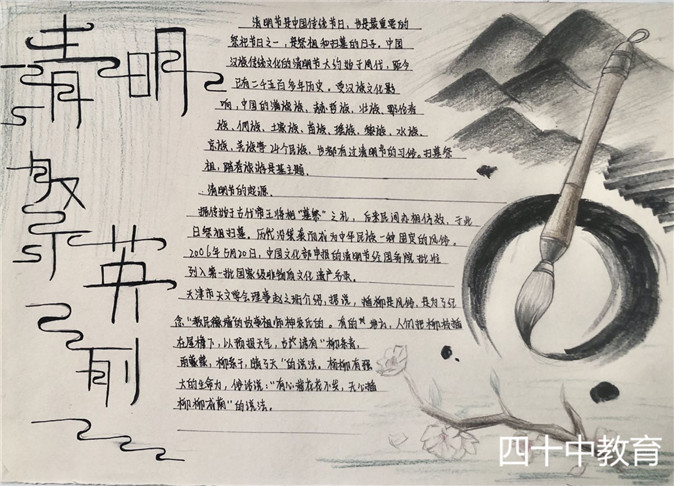 清明
祭英烈
清明节是中国传统节日，也是最重要的
祭祀节日之一，是祭祖和扫墓的日子。中国
汉族传统文化的清明节大约始于周代，距今
已有二千五百多年历史。受汉族文化影
响，中国的满族族、赫哲族、壮族、鄂伦春
族、侗族、土家族、苗族、瑶族、黎族、水族、
京族、羌族等24个民族，也都有过清明节的习俗。扫墓祭
祖、踏青旅游是基主题。
清明节的起源
据传始于古代帝王将相“墓祭”之礼，后来民间亦相仿效，于此
日祭祖扫墓。历代沿袭而成为中华民族一种固定的风俗。
2006年5月20日，中国文化部申报的清明节经国务院批准
列入第一批国家级非物质文化遗产名录。
天津市天文学会理事赵之珩介绍，据说，插柳是风俗，是为了纪
念“教民稼穑”的故事祖师神农氏的。有的地方，人们把柳枝插
在屋檐下，以预报天气，古谚有“柳条青，
雨蒙蒙；柳条干，晴了天”的说法。杨柳有强
大的生命力，俗话说：“有心栽花花不发，无心插
柳柳成荫”的说法。
四十中教育